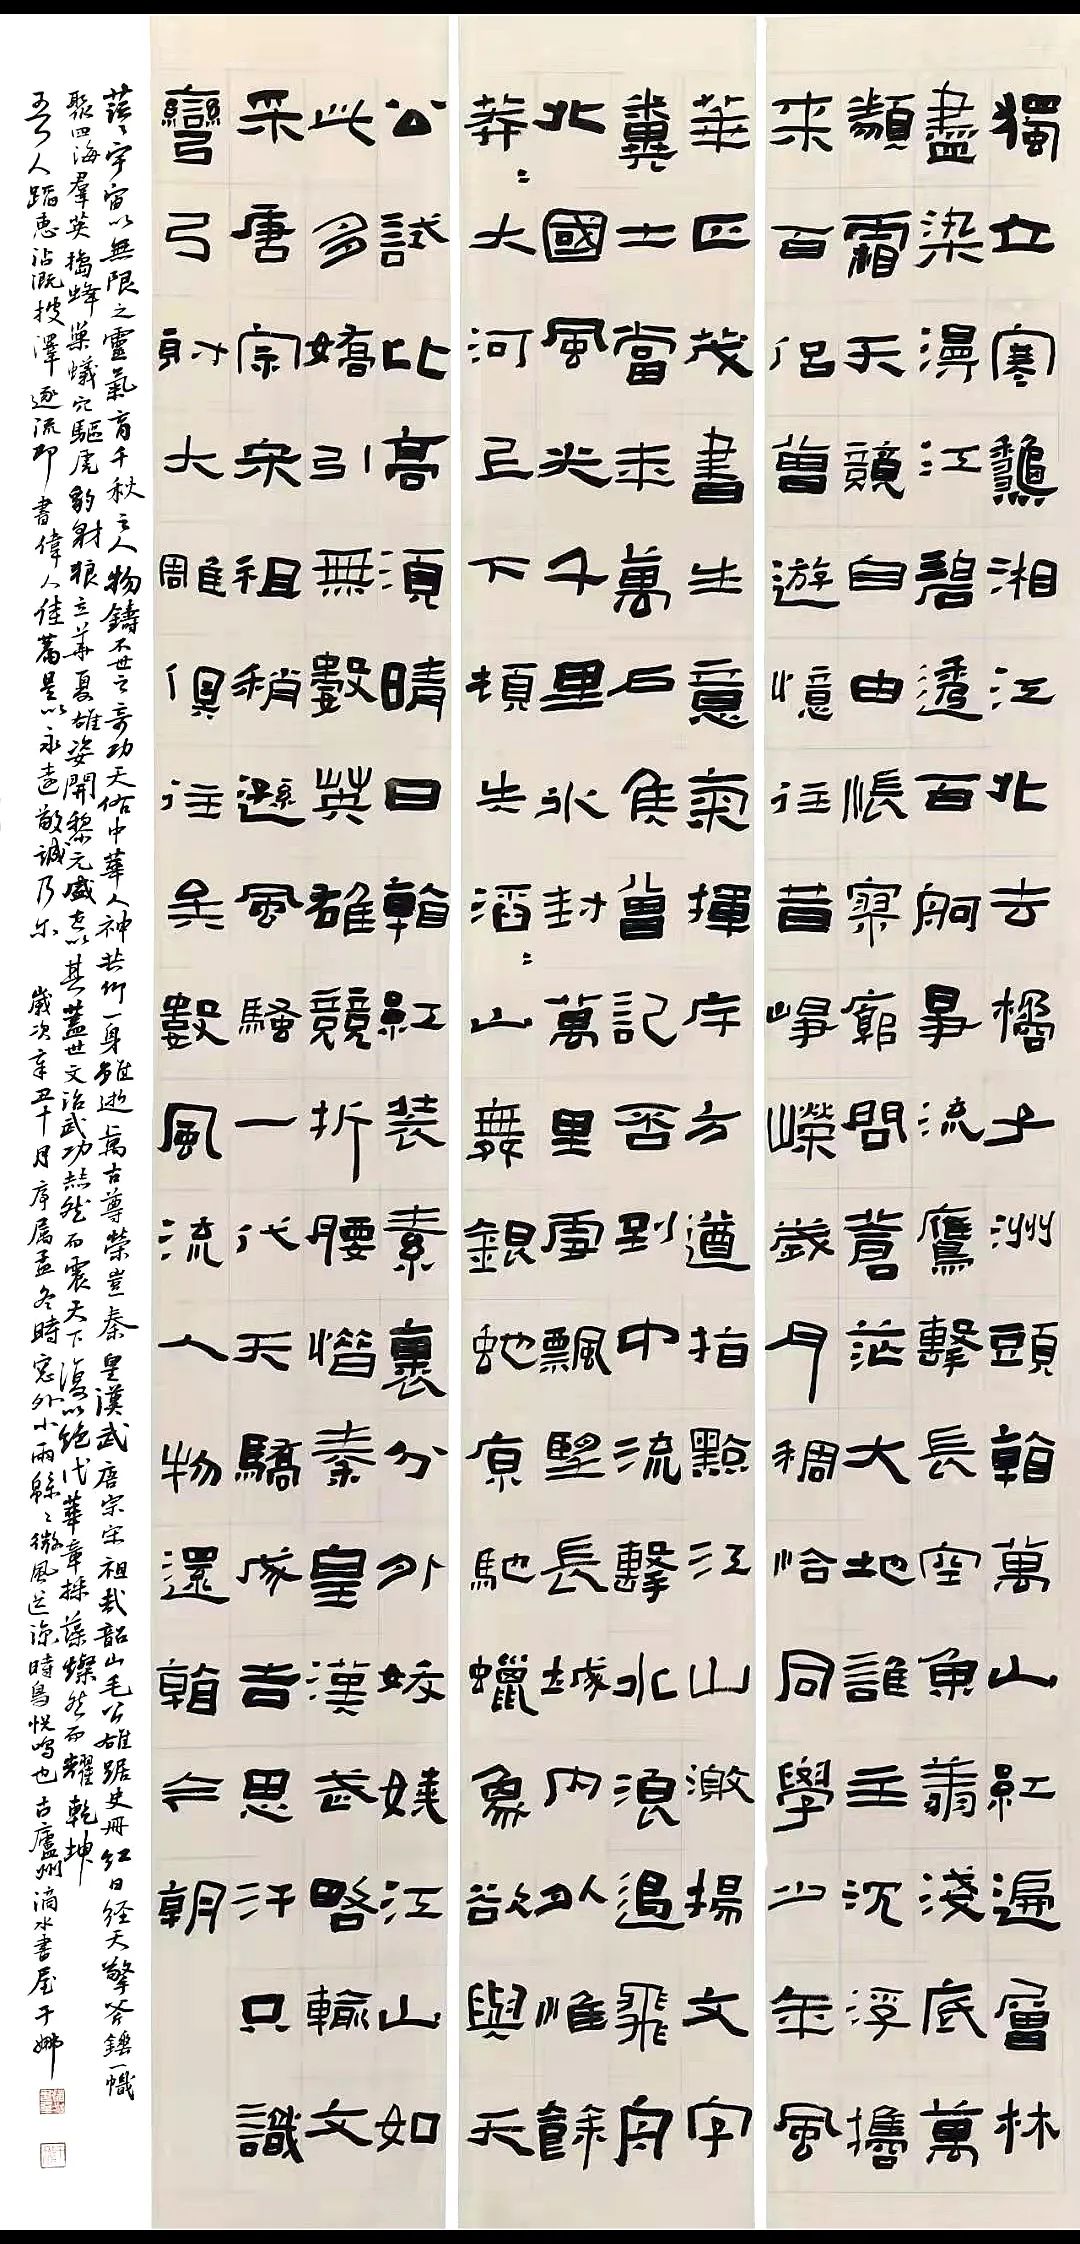 獨立寒龝湘江北去橘子洲頭看萬山紅遍層林
盡染漫江碧透百舸爭流鷹擊長空魚翔淺底萬
類霜天競自由悵寥廓問蒼茫大地誰主沉浮攜
來百侶曾遊憶往昔崢嶸歲月稠恰同學少年風
華正茂書生意氣揮斥方遒指點江山激揚文字
糞土當年萬戶侯曾記否到中流擊水浪遏飛舟
北國風光千里冰封萬里雪飄望長城內外惟餘
莽〻大河上下頓失滔〻山舞銀蛇原馳蠟象欲與天
公試比高須晴日看紅裝素裹分外妖嬈江山如
此多嬌引無數英雄競折腰惜秦皇漢武略輸文
采唐宗宋祖稍遜風騷一代天驕成吉思汗只識
彎弓射大雕俱往矣數風流人物還看今朝
茫〻宇宙以無限之靈氣育千秋之人物鑄不世之奇功天佑中華人神共仰一身雖逝萬古尊榮豈秦皇漢武唐宗宋祖哉韶山毛公雄踞史冊紅日經天擎斧鐮一幟
聚四海羣英搗蜂巢蟻穴驅虎豹射狼立華夏雄姿開黎元盛世以其蓋世文治武功赫然而震天下復以絕代華章採藻燦然而耀乾坤
吾人蹈惠沾溉披澤逐流即書偉人佳篇是以永志敬誠乃尔 歲次辛丑十月序属孟冬時窓外小雨綿〻微風送涼時鳥悅鳴也古廬州滴水書屋于娜